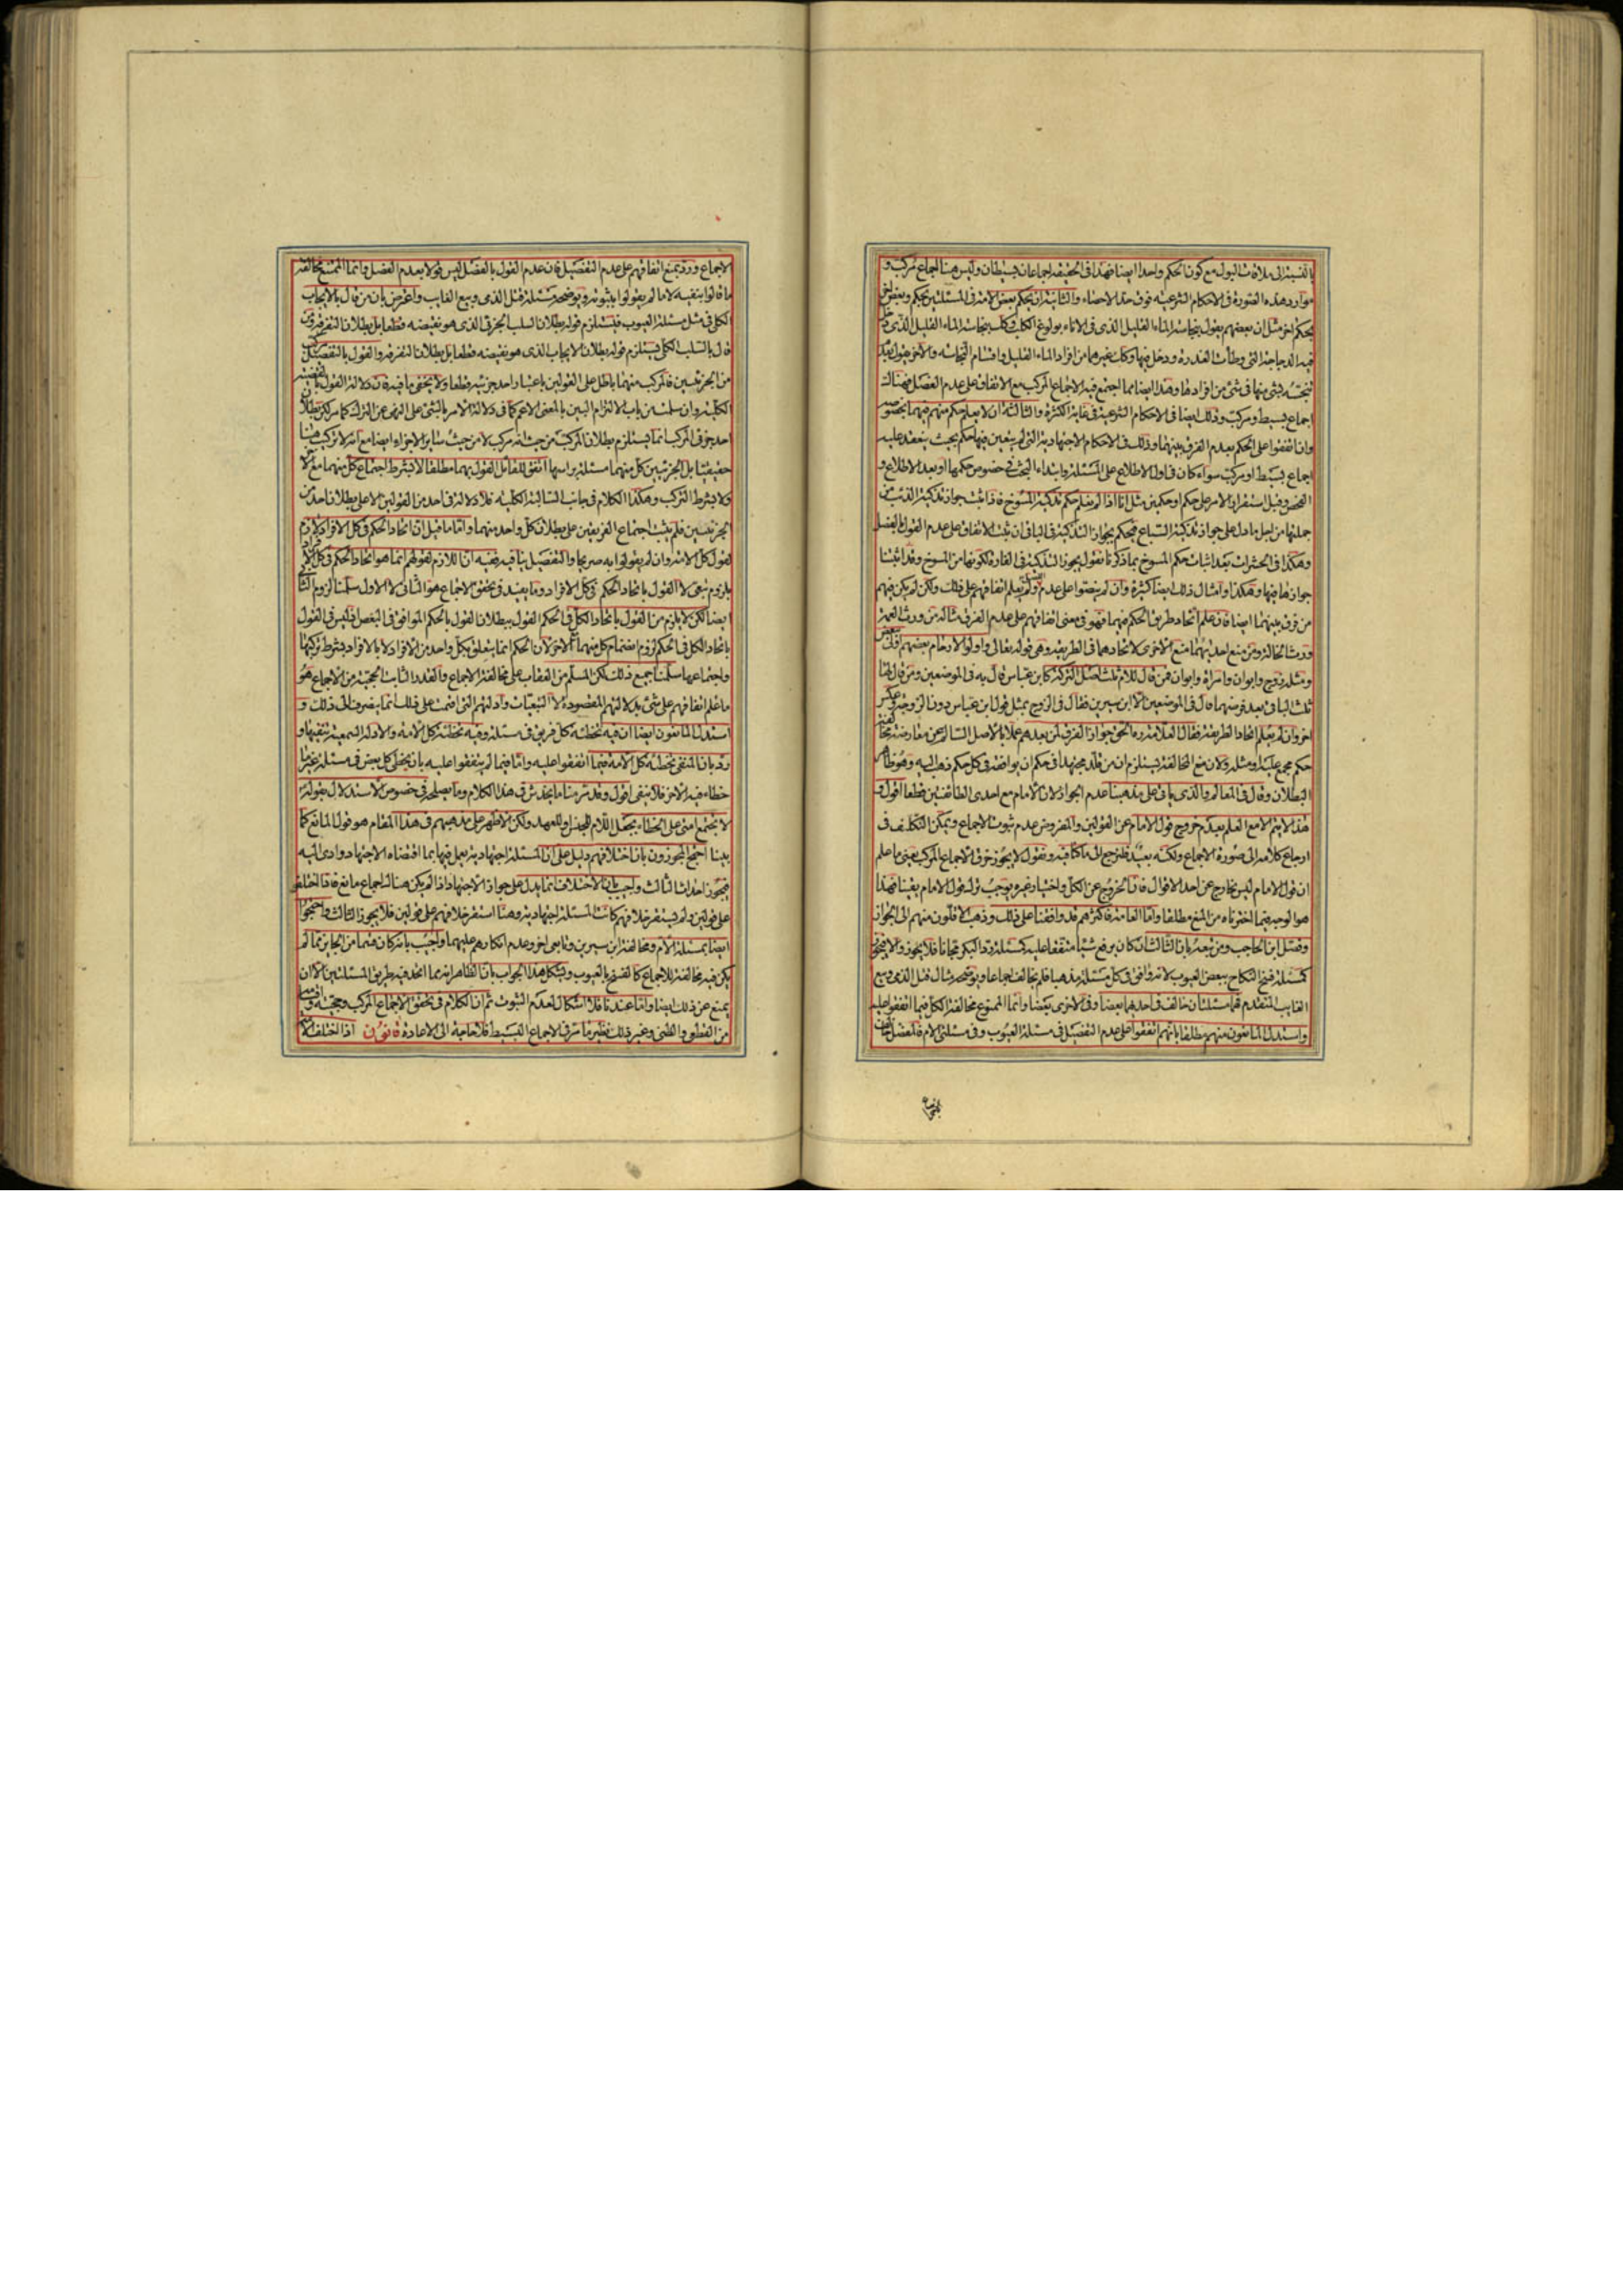 بالنسبة الى ملاقات البول مع كون الحكم واحدا ايضا فهذا فى الحقيقة اجماعان بسيطان وليس هنا اجماع مركب و
موارد هذه الصورة فى الاحكام الشرعية فوق حد الاحصاء والثانية ان يحكم بعض الامة فى المسئلتين بحكم وبعض
بحكم اخر مثل ان بعضهم يقول بنجاسة الماء القليل الذى فى الاناء بولوغ الكلب وكك بنجاسة الماء القليل الذى دخل
فيه الدجاجة التى وطأت العذرة ودخل فيها وكك غيرهما من افراد الماء القليل واقسام النجاسة والاخر يقول بعدم
تنجسه بشئ منها فى شئ من افرادها وهذا ايضا مما اجتمع فيه الاجماع المركب مع الاتفاق على عدم الفصل فهناك
اجماع بسيط ومركب وذلك ايضا فى الاحكام الشرعية فى غاية الكثرة والثالثة ان لا يعلم حكم منهم فيهما بخصوصه
وان اتفقوا على الحكم بعدم الفرق بينهما وذلك فى الاحكام الاجتهادية التى لم يتعين فيها حكم بحيث ينعقد عليه
اجماع بسيط او مركب سواء كان فى اول الاطلاع على المسئلة وابتداء البحث فى خصوص حكمها او بعد الاطلاع و
الفحص وقبل استقرار الامر على حكم او حكمين مثل انا اذا لم نعلم حكم تذكية المسوخ فاذا ثبت جواز تذكية الذئب من
جملتها من اجل ما دل على جواز تذكية السباع فيحكم بجواز التذكية فى الباقى ان ثبت الاتفاق على عدم القول بالفصل
وهكذا فى الحشرات بعد اثبات حكم المسوخ بما ذكرنا نقول يجوز التذكية فى الفارة لكونها من المسوخ وقد اثبتنا
جوازها فيها وهكذا وامثال ذلك ايضا كثيرة وان لم ينصوا على عدم الفصل ولم يعلم اتفاقهم على ذلك ولكن لم يكن فيهم
من فرق بينهما ايضا فان علم اتحاد طريق الحكم فيهما فهو فى معنى اتفاقهم على عدم الفرق مثاله من ورث العمة
ورث الخالة ومن منع احديهما منع الاخرى لاتحادهما فى الطريقة وهى قوله تعالى واولوا الارحام بعضهم اولى ببعض
ومثله زوج وابوان وامراة وابوان فمن قال للام ثلث اصل التركة كابن عباس قال به فى الموضعين ومن قال لها
ثلث الباقى بعد فرضهما قال فى الموضعين الا ابن سيرين فقال فى الزوج بمثل قول ابن عباس دون الزوجة وعكس
اخر وان لم يعلم اتحاد الطريقة فقال العلامة ره الحق جواز الفرق لمن بعدهم عملا بالاصل السالم عن معارضة مخالفة
حكم مجمع عليه او مثله ولان منع المخالفة يستلزم ان من قلد مجتهدا فى حكم ان يوافقه فى كل حكم ذهب اليه وهو ظاهر
البطلان وقال فى المعالم والذى ياتى على مذهبنا عدم الجواز لان الامام مع احدى الطائفتين قطعا اقول و
هذا لا يتم الا مع العلم بعدم خروج قول الامام عن القولين والمفروض عدم ثبوت الاجماع ويمكن التكلف فى
ارجاع كلامه الى صورة الاجماع ولكنه بعيد فلنرجع الى ما كنا فيه ونقول لا يجوز خرق الاجماع المركب يعنى ما علم
ان قول الامام ليس بخارج عن احد الاقوال فان الخروج عن الكل واختيار غيره يوجب ترك قول الامام يقينا فهذا
هو الوجه فيما اخترناه من المنع مطلقا واما العامة فاكثرهم قد وافقنا على ذلك وذهب الاقلون منهم الى الجواز
وفصل ابن الحاجب ومن تبعه بان الثالث ان كان يرفع شيئا متفقا عليه كمسئلة رد البكر مجانا فلا يجوز والا فيجوز
كمسئلة فسخ النكاح ببعض العيوب لانه وافق فى كل مسئلة مذهبا فلم يخالف اجماعا ويوضحه مثال قتل الذمى وبيع
الغايب المتقدم فهما مسئلتان خالف فى احدهما بعضا وفى الاخرى بعضا وانما الممنوع مخالفة الكل فيما اتفقوا عليه
واستدل المانعون منهم مطلقا بانهم اتفقوا على عدم التفصيل فى مسئلة العيوب وفى مسئلة الام فالمفصل خالف
الاجماع ورد بمنع اتفاقهم على عدم التفصيل فان عدم القول بالفصل ليس قولا بعدم الفصل وانما الممتنع مخالفة
ما قالوا بنفيه لا ما لم يقولوا بثبوته ويوضحه مسئلة قتل الذمى وبيع الغايب واعترض بان من قال بالايجاب
الكلى فى مثل مسئلة العيوب فيستلزم قوله بطلان السلب الجزئى الذى هو نقيضه قطعا بل بطلان التفرقة ومن
قال بالسلب الكلى فيستلزم قوله بطلان الايجاب الذى هو نقيضه قطعا بل بطلان التفرقة والقول بالتفصيل مركب
من الجزئيتين فالمركب منهما باطل على القولين باعتبار احد جزئيه قطعا ولا يخفى ما فيه فان دلالة القول بالقضية
الكلية وان سلمت من باب الالتزام البين بالمعنى الاعم كما فى دلالة الامر بالشئ على النهى عن الترك كما مر لكن بطلان
احد جزئى المركب انما يستلزم بطلان المركب من حيث انه مركب لا من حيث ساير الاجزاء ايضا مع انه لا تركيب هنا
حقيقيا بل الجزئيتين كل منهما مسئلة براسها اتفق للقائل القول بهما مطلقا لا بشرط اجتماع كل منهما مع الاخر
ولا بشرط التركب وهكذا الكلام فى جانب السالبة الكلية فلا دلالة فى احد من القولين الا على بطلان احد من
الجزئيتين فلم يثبت اجتماع الفريقين على بطلان كل واحد منهما واما ما قيل ان اتحاد الحكم فى كل الافراد لازم
لقول كل الامة وان لم يقولوا به صريحا والتفصيل ينافيه ففيه ان اللازم لقولهم انما هو اتحاد الحكم فى كل الافراد
بلزوم تبعى لا القول باتحاد الحكم فى كل الافراد وما يفيد فى تحقق الاجماع هو الثانى لا الاول سلمنا لزوم الثانى
ايضا لكن لا يلزم من القول باتحاد الكل فى الحكم القول ببطلان القول بالحكم الموافق فى البعض فليس فى القول
باتحاد الكل فى الحكم لزوم انضمام كل منهما مع الاخر لان الحكم انما يتعلق بكل واحد من الافراد لا بالافراد بشرط تركيبها
واجتماعها سلمنا جميع ذلك لكن المسلم من العقاب على مخالفة الاجماع والقدر الثابت الحجية من الاجماع هو
ما علم اتفاقهم على شئ بدلالتهم المقصودة لا التبعيات وادلتهم التى اقيمت على ذلك انما ينصرف الى ذلك و
استدل المانعون ايضا ان فيه تخطئة كل فريق فى مسئلة وفيه تخطئة كل الامة والادلة السمعية تنفيها و
رد بان المنفى تخطئة كل الامة فيما اتفقوا عليه واما فيما لم يتفقوا عليه بان يخطى كل بعض فى مسئلة غير ما
خطاء فيه الاخر فلا ينفى اقول وقد مر منا ما يخدش فى هذا الكلام وما يصلحه فى خصوص الاستدلال بقوله
لا يجتمع امتى على الخطاء بجعل اللام للجنس او للعهد ولكن الاظهر على مذهبهم فى هذا المقام هو قول المانع كما
بينا احتج المجوزون بان اختلافهم دليل على ان المسئلة اجتهادية يعمل فيها بما اقتضاه الاجتهاد وادى اليه
فيجوز احداث الثالث واجيب بان الاختلاف انما يدل على جواز الاجتهاد اذا لم يكن هناك اجماع مانع فاذا اختلفوا
على قولين ولم يستقر خلافهم كانت المسئلة اجتهادية وهنا استقر خلافهم على قولين فلا يجوز الثالث واحتجوا
ايضا بمسئلة الام ومخالفة ابن سيرين وتابعى اخر وعدم انكارهم عليهما واجيب بانه كان فيهما من الجايز مما لم
يكن فيه مخالفة للاجماع كالفسخ بالعيوب ويشكل هذا الجواب بان الظاهر انه مما اتحد فيه طريق المسئلتين الا ان
يمنع عن ذلك ايضا واما عندنا فلا اشكال لعدم الثبوت ثم ان الكلام فى تحقق الاجماع المركب وحجيته واقسامه
من القطعى والظنى وغير ذلك نظير ما مر فى الاجماع البسيط فلا حاجة الى الاعادة قانون اذا اختلف الامة